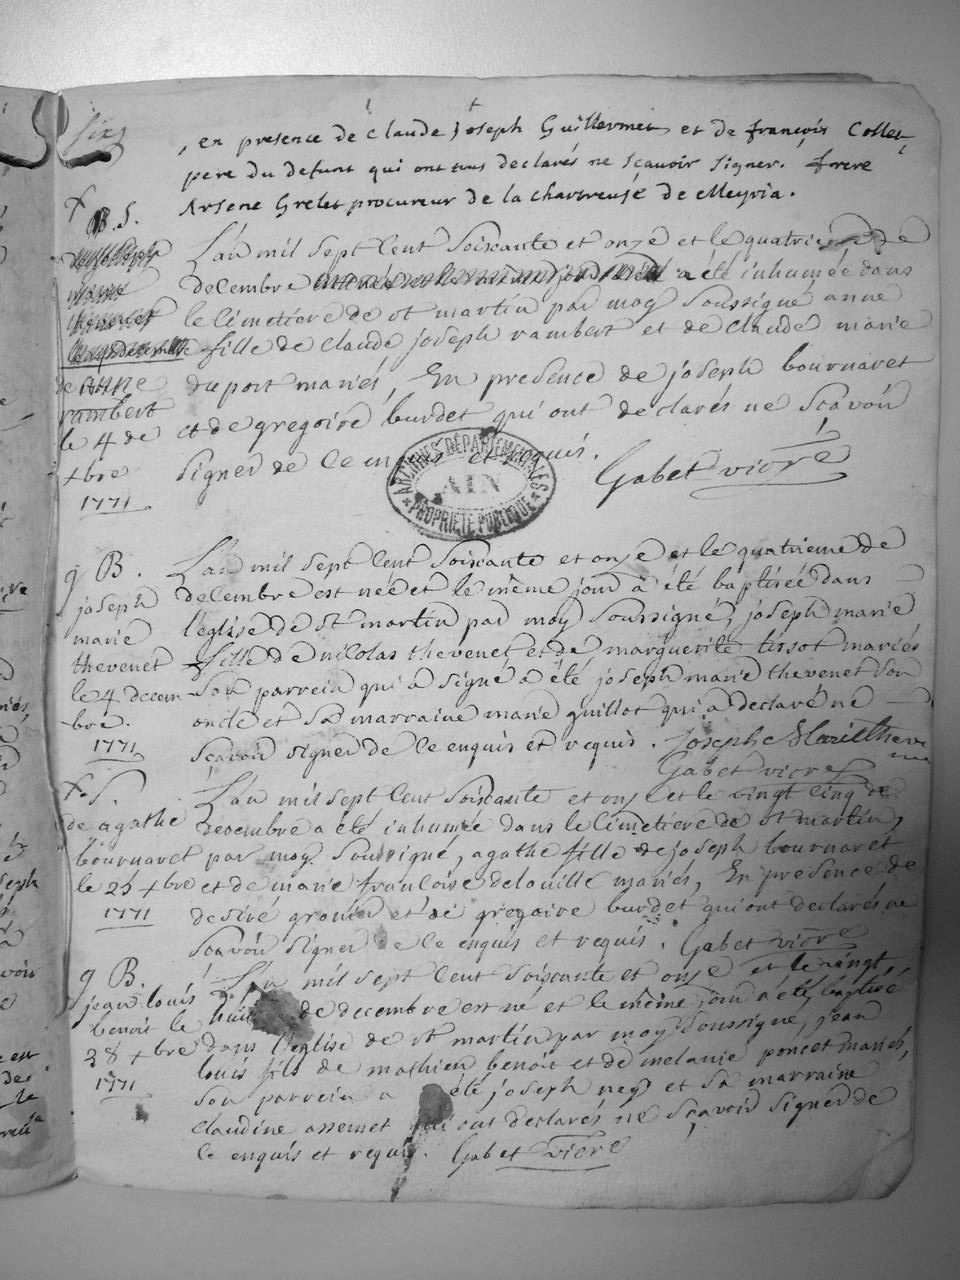 six
, en presence de Claude Joseph Guillermet et de françois Collet
pere du defunt qui ont tous declarés ne sçavoir signer. frere
Arsene Grelet procureur de la chartreuse de Meyria.
B. S.
de anne
rambert
le 4 de
xbre
1771
L'an mil sept cent soixante et onze et le quatrieme de
decembre a été inhumée dans
le cimetiere de st martin par moy soussigné, anne
fille de claude joseph rambert et de claude marie
duport mariés, En presence de joseph bournavet
et de gregoire burdet qui ont declarés ne sçavoir
signer de ce enquis et requis.
Gabet vicre
ARCHIVES DÉPARTEMENTALES
AIN
PROPRIÉTÉ PUBLIQUE
9 B.
joseph
marie
thevenet
le 4 decem
bre.
1771
L'an mil sept cent soixante et onze et le quatrieme de
decembre est née et le même jour a été baptisée dans
l'eglise de st martin par moy soussigné, joseph marie
fille de nicolas thevenet et de marguerite tissot mariés
son parrein qui a signé a été joseph marie thevenet son
oncle et sa marraine marie guillot qui a declaré ne
sçavoir signer de ce enquis et requis. Joseph Marie Theve
net
Gabet vicre
S.
de agathe
bournavet
le 25 xbre
1771
L'an mil sept cent soixante et onze et le vingt cinq de
decembre a été inhumée dans le cimetiere de st martin,
par moy soussigné, agathe fille de joseph bournavet
et de marie françoise delouille mariés, En presence de
desiré et de gregoire burdet qui ont declarés ne
sçavoir signer de ce enquis et requis. Gabet vicre
9 B.
jean louis
benoit le
28 xbre
1771
L'an mil sept cent soixante et onze et le vingt
huit de decembre est né et le même jour a été baptisé
dans l'eglise de st martin par moy soussigné, jean
louis fils de mathieu benoit et de melanie poncet mariés,
son parrein a été joseph et sa marraine
claudine assemet qui ont declarés ne sçavoir signer de
ce enquis et requis. Gabet vicre